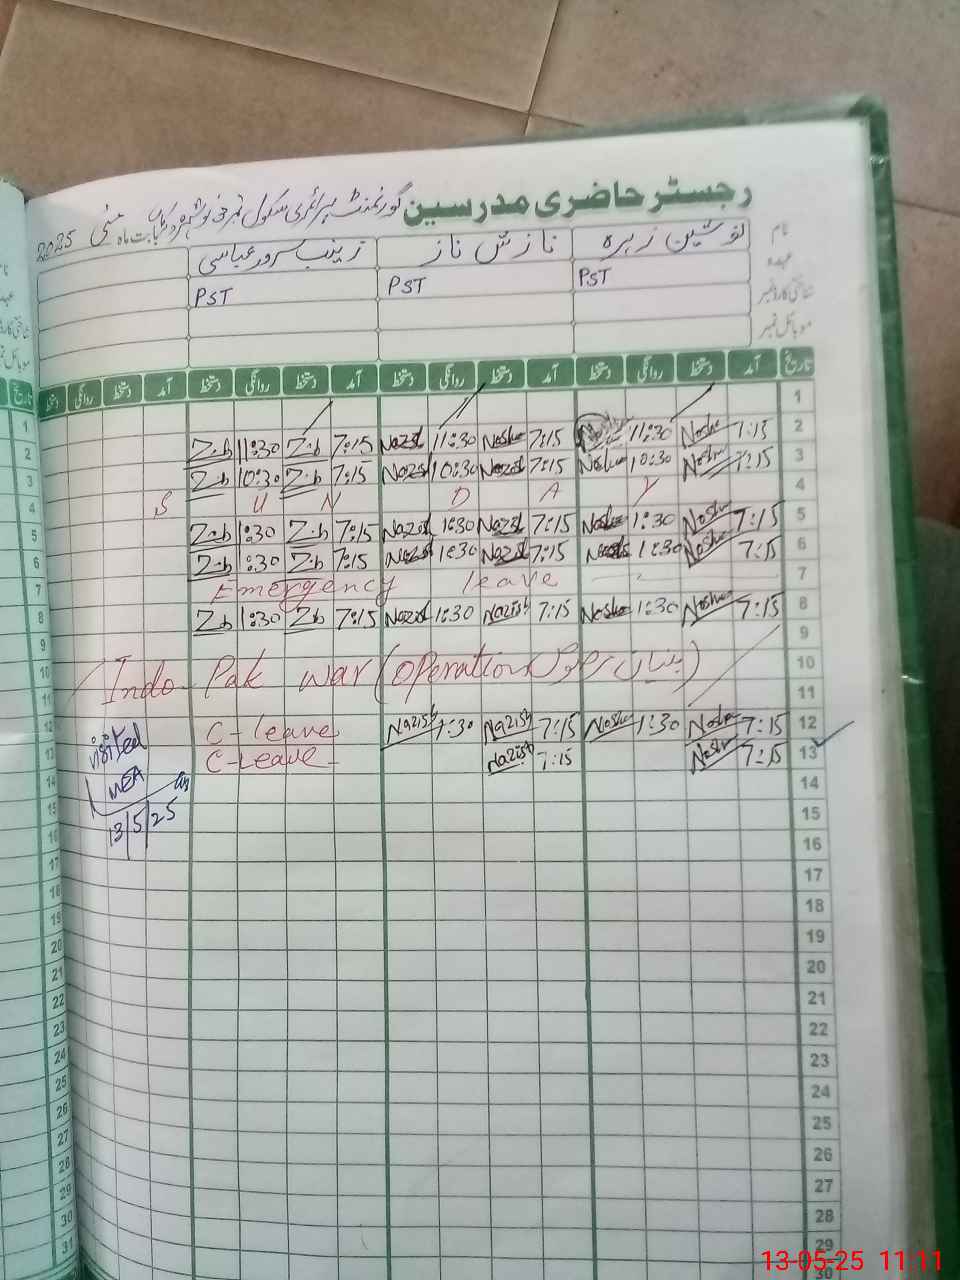 رجسٹر حاضری مدرسین گورنمنٹ پرائمری سکول نمبر بابت ماہ مئی 2025
نام نوشین زہرہ نازش ناز زینب سرور عباسی
عہدہ PST PST PST
شناختی کارڈ نمبر
موبائل نمبر
تاریخ آمد دستخط روانگی دستخط آمد دستخط روانگی دستخط آمد دستخط روانگی دستخط آمد دستخط روانگی دستخط
1
Z.b 11:30 Z.b 7:15 Nazish 11:30 7:15 11:30 Nosh 7:15 2
Z.b 10:30 Z.b 7:15 Nazish 10:30 Nazish 7:15 Noshe 10:30 Noshe 7:15 3
S U N D A Y 4
Z.b 1:30 Z.b 7:15 Nazish 1:30 Nazish 7:15 Noshe 1:30 Noshe 7:15 5
Z.b 1:30 Z.b 7:15 Nazish 1:30 Nazish 7:15 Noshe 1:30 Noshe 7:15 6
Emergency leave 7
Z.b 1:30 Z.b 7:15 Nazish 1:30 Nazish 7:15 Noshe 1:30 Noshe 7:15 8
9
Indo - Pak war (operation بنیان مرصوص) 10
11
C-leave Nazish 1:30 Nazish 7:15 Noshe 1:30 Noshe 7:15 12
C-leave - Nazish 7:15 Noshe 7:15 13
visited
MEA
13/5/25
14
15
16
17
18
19
20
21
22
23
24
25
26
27
28
29
30
13-05-25 11:11